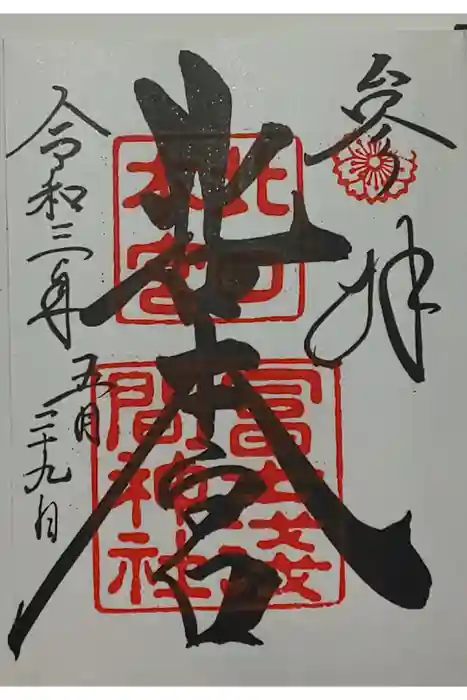 參拝
北口本宮
北口
本宮
冨士淺
間神社
令和三年
五月
二十九日